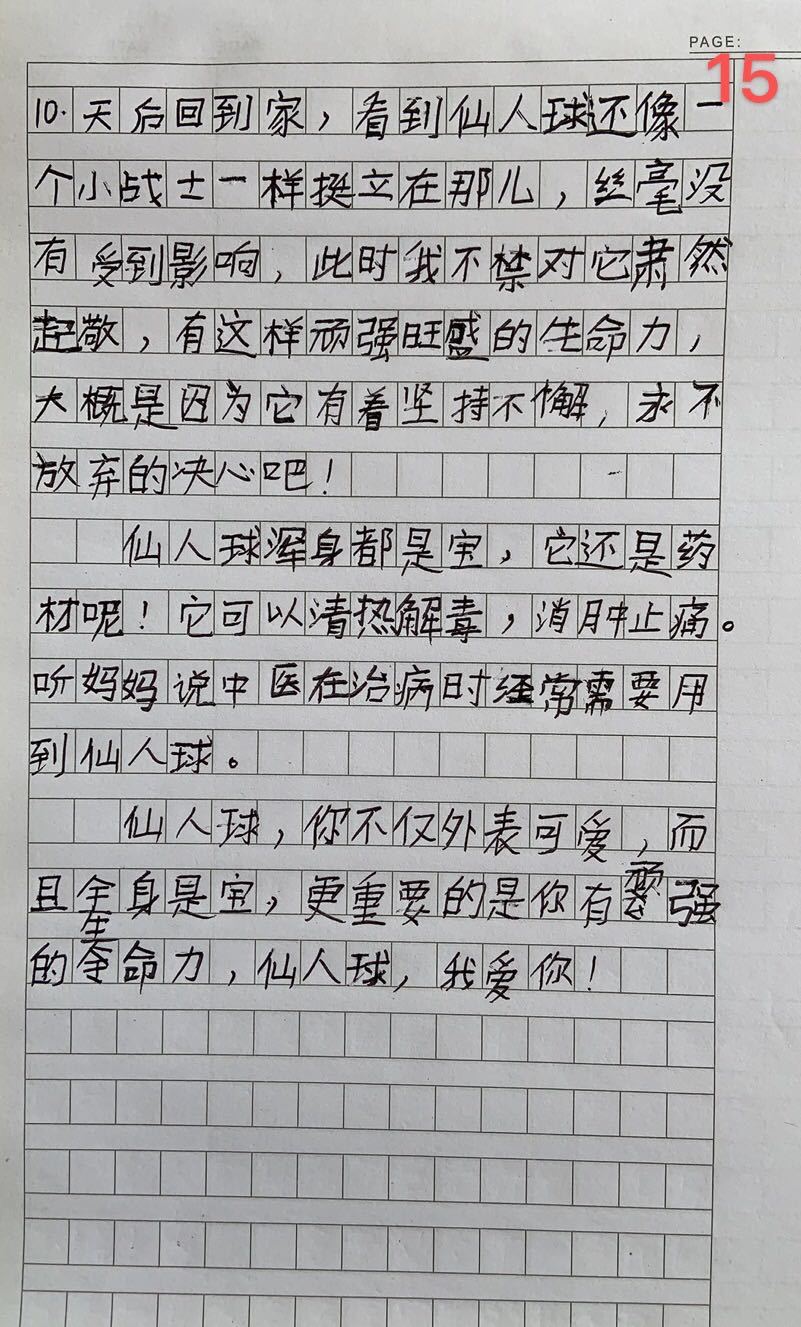 PAGE:
15
10.天后回到家，看到仙人球还像一
个小战士一样挺立在那儿，丝毫没
有受到影响，此时我不禁对它肃然
起敬，有这样顽强旺盛的生命力，
大概是因为它有着坚持不懈，永不
放弃的决心吧！
仙人球浑身都是宝，它还是药
材呢！它可以清热解毒，消肿止痛。
听妈妈说中医在治病时经常需要用
到仙人球。
仙人球，你不仅外表可爱，而
且全身是宝，更重要的是你有顽强
的生命力，仙人球，我爱你！